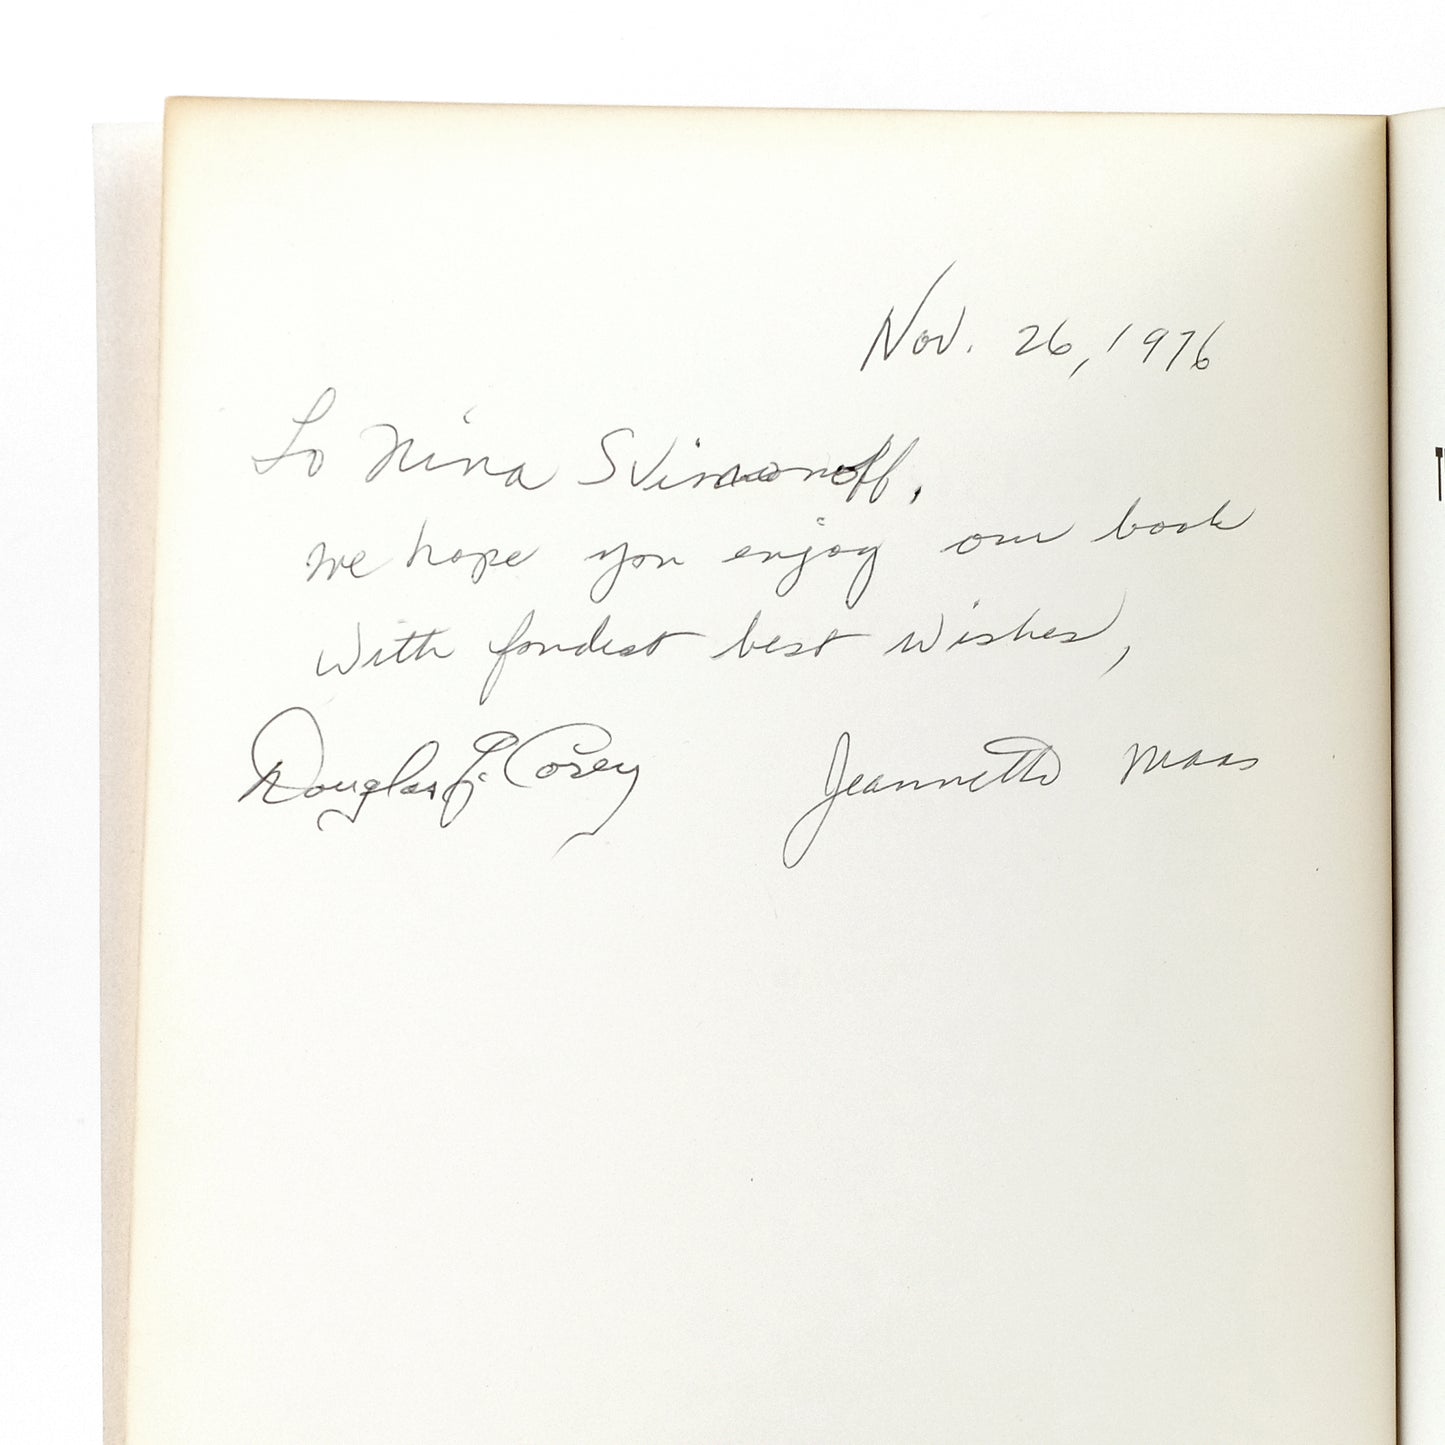 Nov. 26, 1976
To Nina Svimonoff,
We hope you enjoy our book
With fondest best wishes,
Douglas L. Corey Jeannette Maas